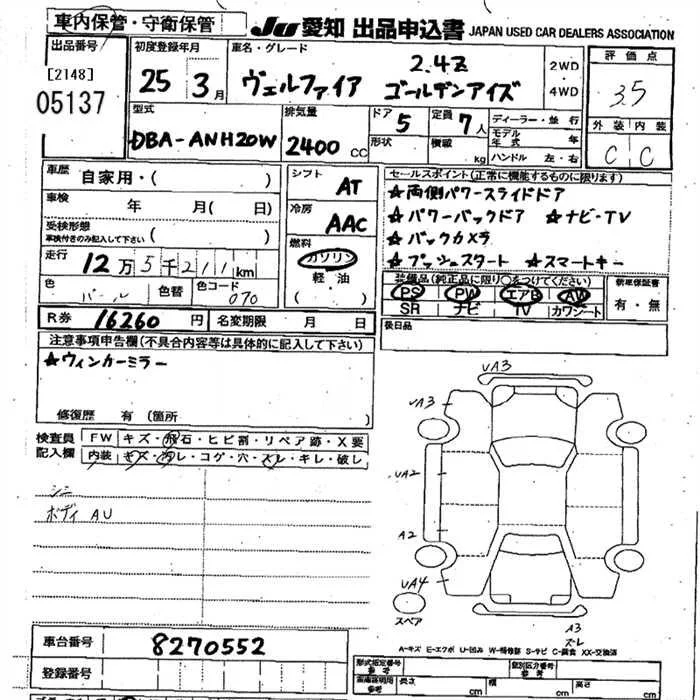 車内保管・守衛保管
JU 愛知 出品申込書 JAPAN USED CAR DEALERS ASSOCIATION
出品番号
[2148]
05137
初度登録年月
25 3月
車名・グレード
ヴェルファイア 2.4Z ゴールデンアイズ
2WD
・
4WD
評価点
3.5
外装 内装
C C
型式
DBA-ANH20W
排気量
2400 CC
ドア 5
形状
定員 7人
積載 kg
ディーラー・並行
モデル年式 年
ハンドル 左・右
車歴 自家用・( )
車検 年 月( 日)
受検形態
車検付きのみ記入して下さい ( )
走行 12万5千211km
色 パール 色替 色コード 070
シフト AT
冷房 AAC
燃料
ガソリン
軽・油
( )
セールスポイント(正常に機能するものに限ります)
★両側パワースライドドア
★パワーバックドア ★ナビ・TV
★バックカメラ
★プッシュスタート ★スマートキー
装備品(純正品に限り○をつけてください)
PS PW エアB AW
SR ナビ TV カワシート
新車保証書
有・無
R券 16260円 名変期限 月 日
後日品
注意事項申告欄(不具合内容等は具体的に記入して下さい)
★ウィンカーミラー
修復歴 有(箇所 )
検査員記入欄
FW キズ・飛石・ヒビ割・リペア跡・X要
内装 キズ・汚レ・コゲ・穴・スレ・キレ・破レ
シミ
ボディ AU
UA3
UA3
UA2
A2
UA4
スペア
A3
スレ
A-キズ E-エクボ U-凹み W-補修跡 S-サビ C-腐食 XX-交換済
車台番号 8270552
登録番号
型式指定番号 参考
類別区分番号 参考
長さ cm 幅 cm 高さ cm